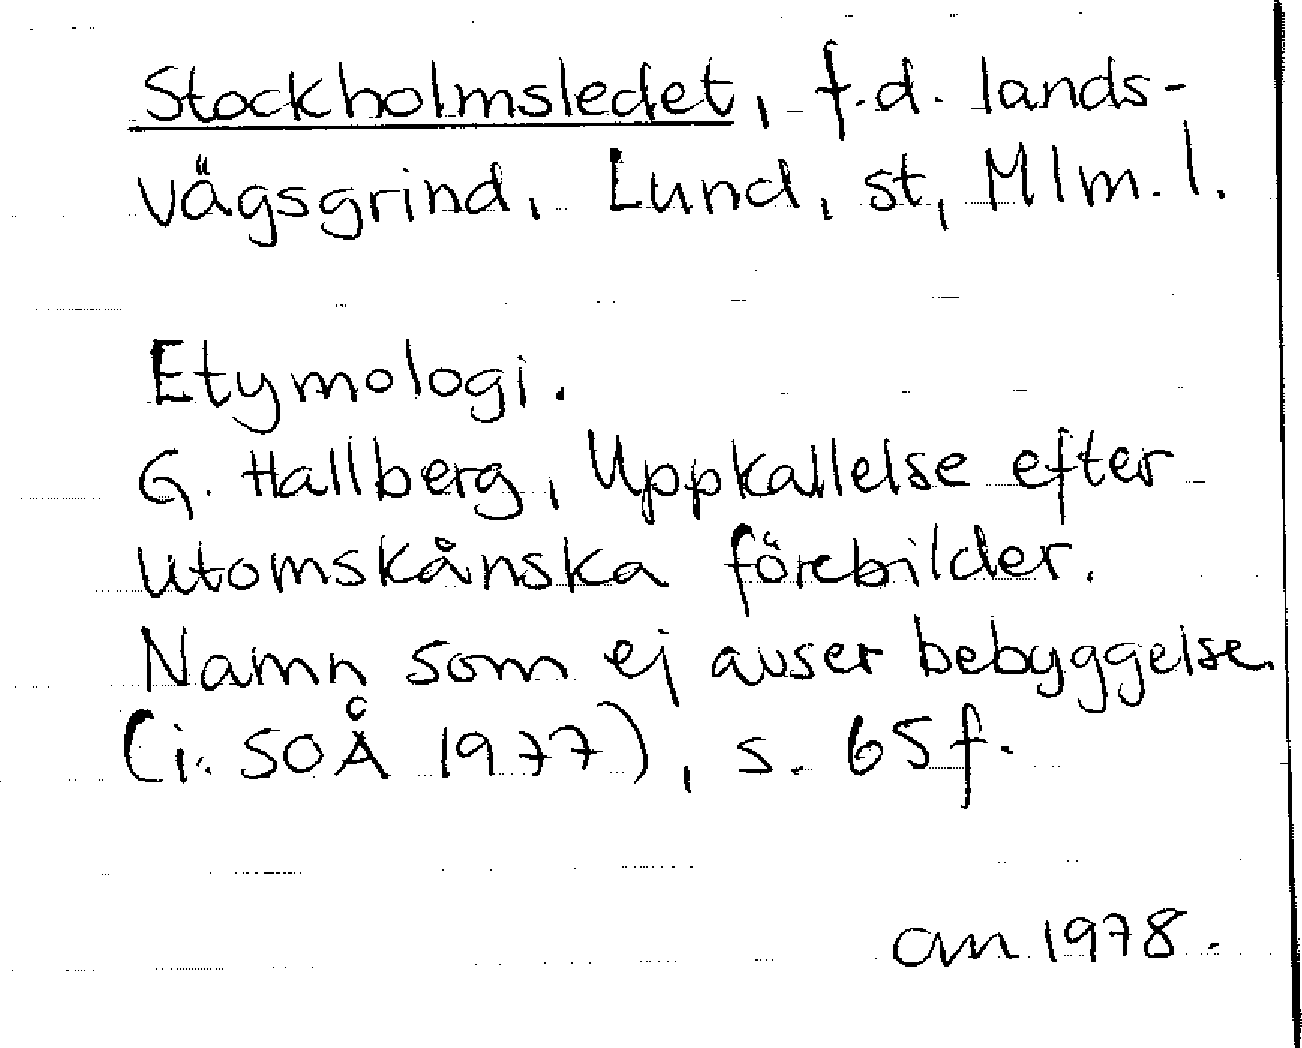 Stockholmsledet, f.d. lands-
vägsgrind, Lund, st, Mlm. l.
Etymologi.
G. Hallberg, Uppkallelse efter
utomskånska förebilder.
Namn som ej avser bebyggelse
(i. SOÅ 1977), s. 65f.
am 1978.